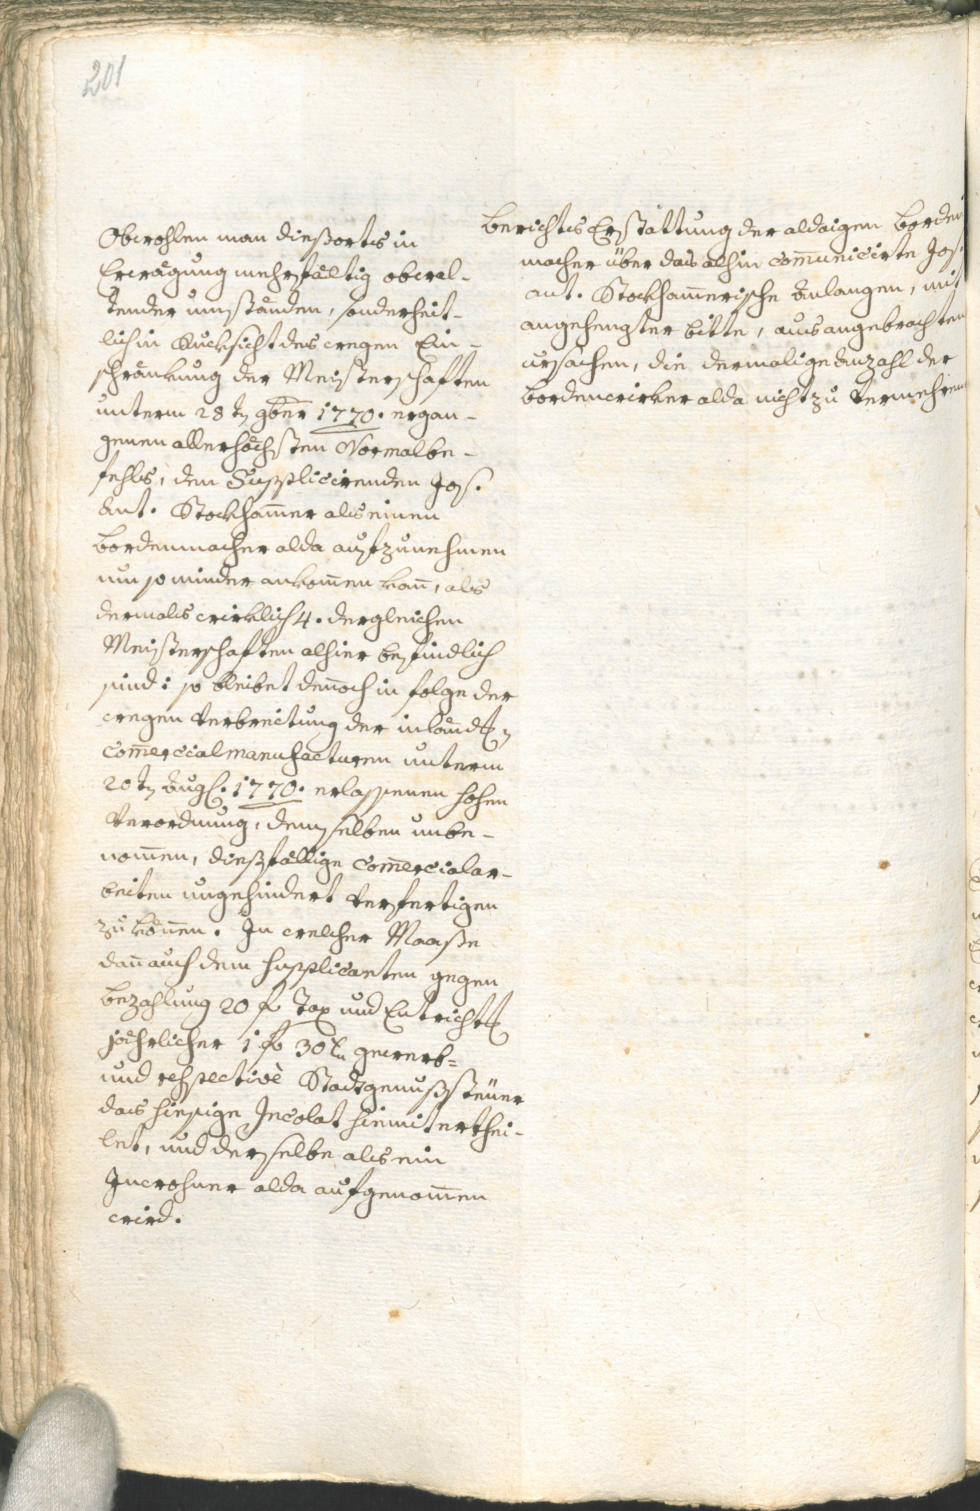 201
Obwohlen man dießorts in
Erwägung mehrfältig obwal-
tender umständen, sonderheit-
lich in Rucksicht des wegen Ein-
schränkung der Meisterschaften
unterm 28tn 9ber 1770. ergan-
genen allerhöchsten Normalbe-
fehls, den Supplicirenden Jos.
Ant. Stockham̄er als einen
bordenmacher alda aufzunehmen
um so minder ankom̄en kan̄, als
dermals wirklich 4. dergleichen
Meisterschaften alhier befindlich
sind: so bleibet den̄och in folge der
wegen Verbreitung der inländ.
Com̄ercialmanufacturen unterm
20tn Aug. 1770. erlassenen hohen
Verordnung, demselben unbe-
nom̄en, dießfällige Com̄ercialar-
beiten ungehindert verfertigen
zu kön̄en. In welcher Maaße
dan̄ auch dem Supplicanten gegen
bezahlung 20 f Tax und Entricht
jährlicher 1 f 30 x gewerb=
und respective Stadtgenußsteüer
das hiesige Incolat hiemit erthei-
let, und derselbe als ein
Inwohner alda aufgenom̄en
wird.
berichts Erstattung der aldaigen borden
macher über das alhin com̄unicirte Jos.
Ant. Stockham̄erische Anlangen, mit
angehengter bitte, aus angebrachten
ursachen, die dermalige Anzahl der
bordenwirker alda nicht zu vermehren